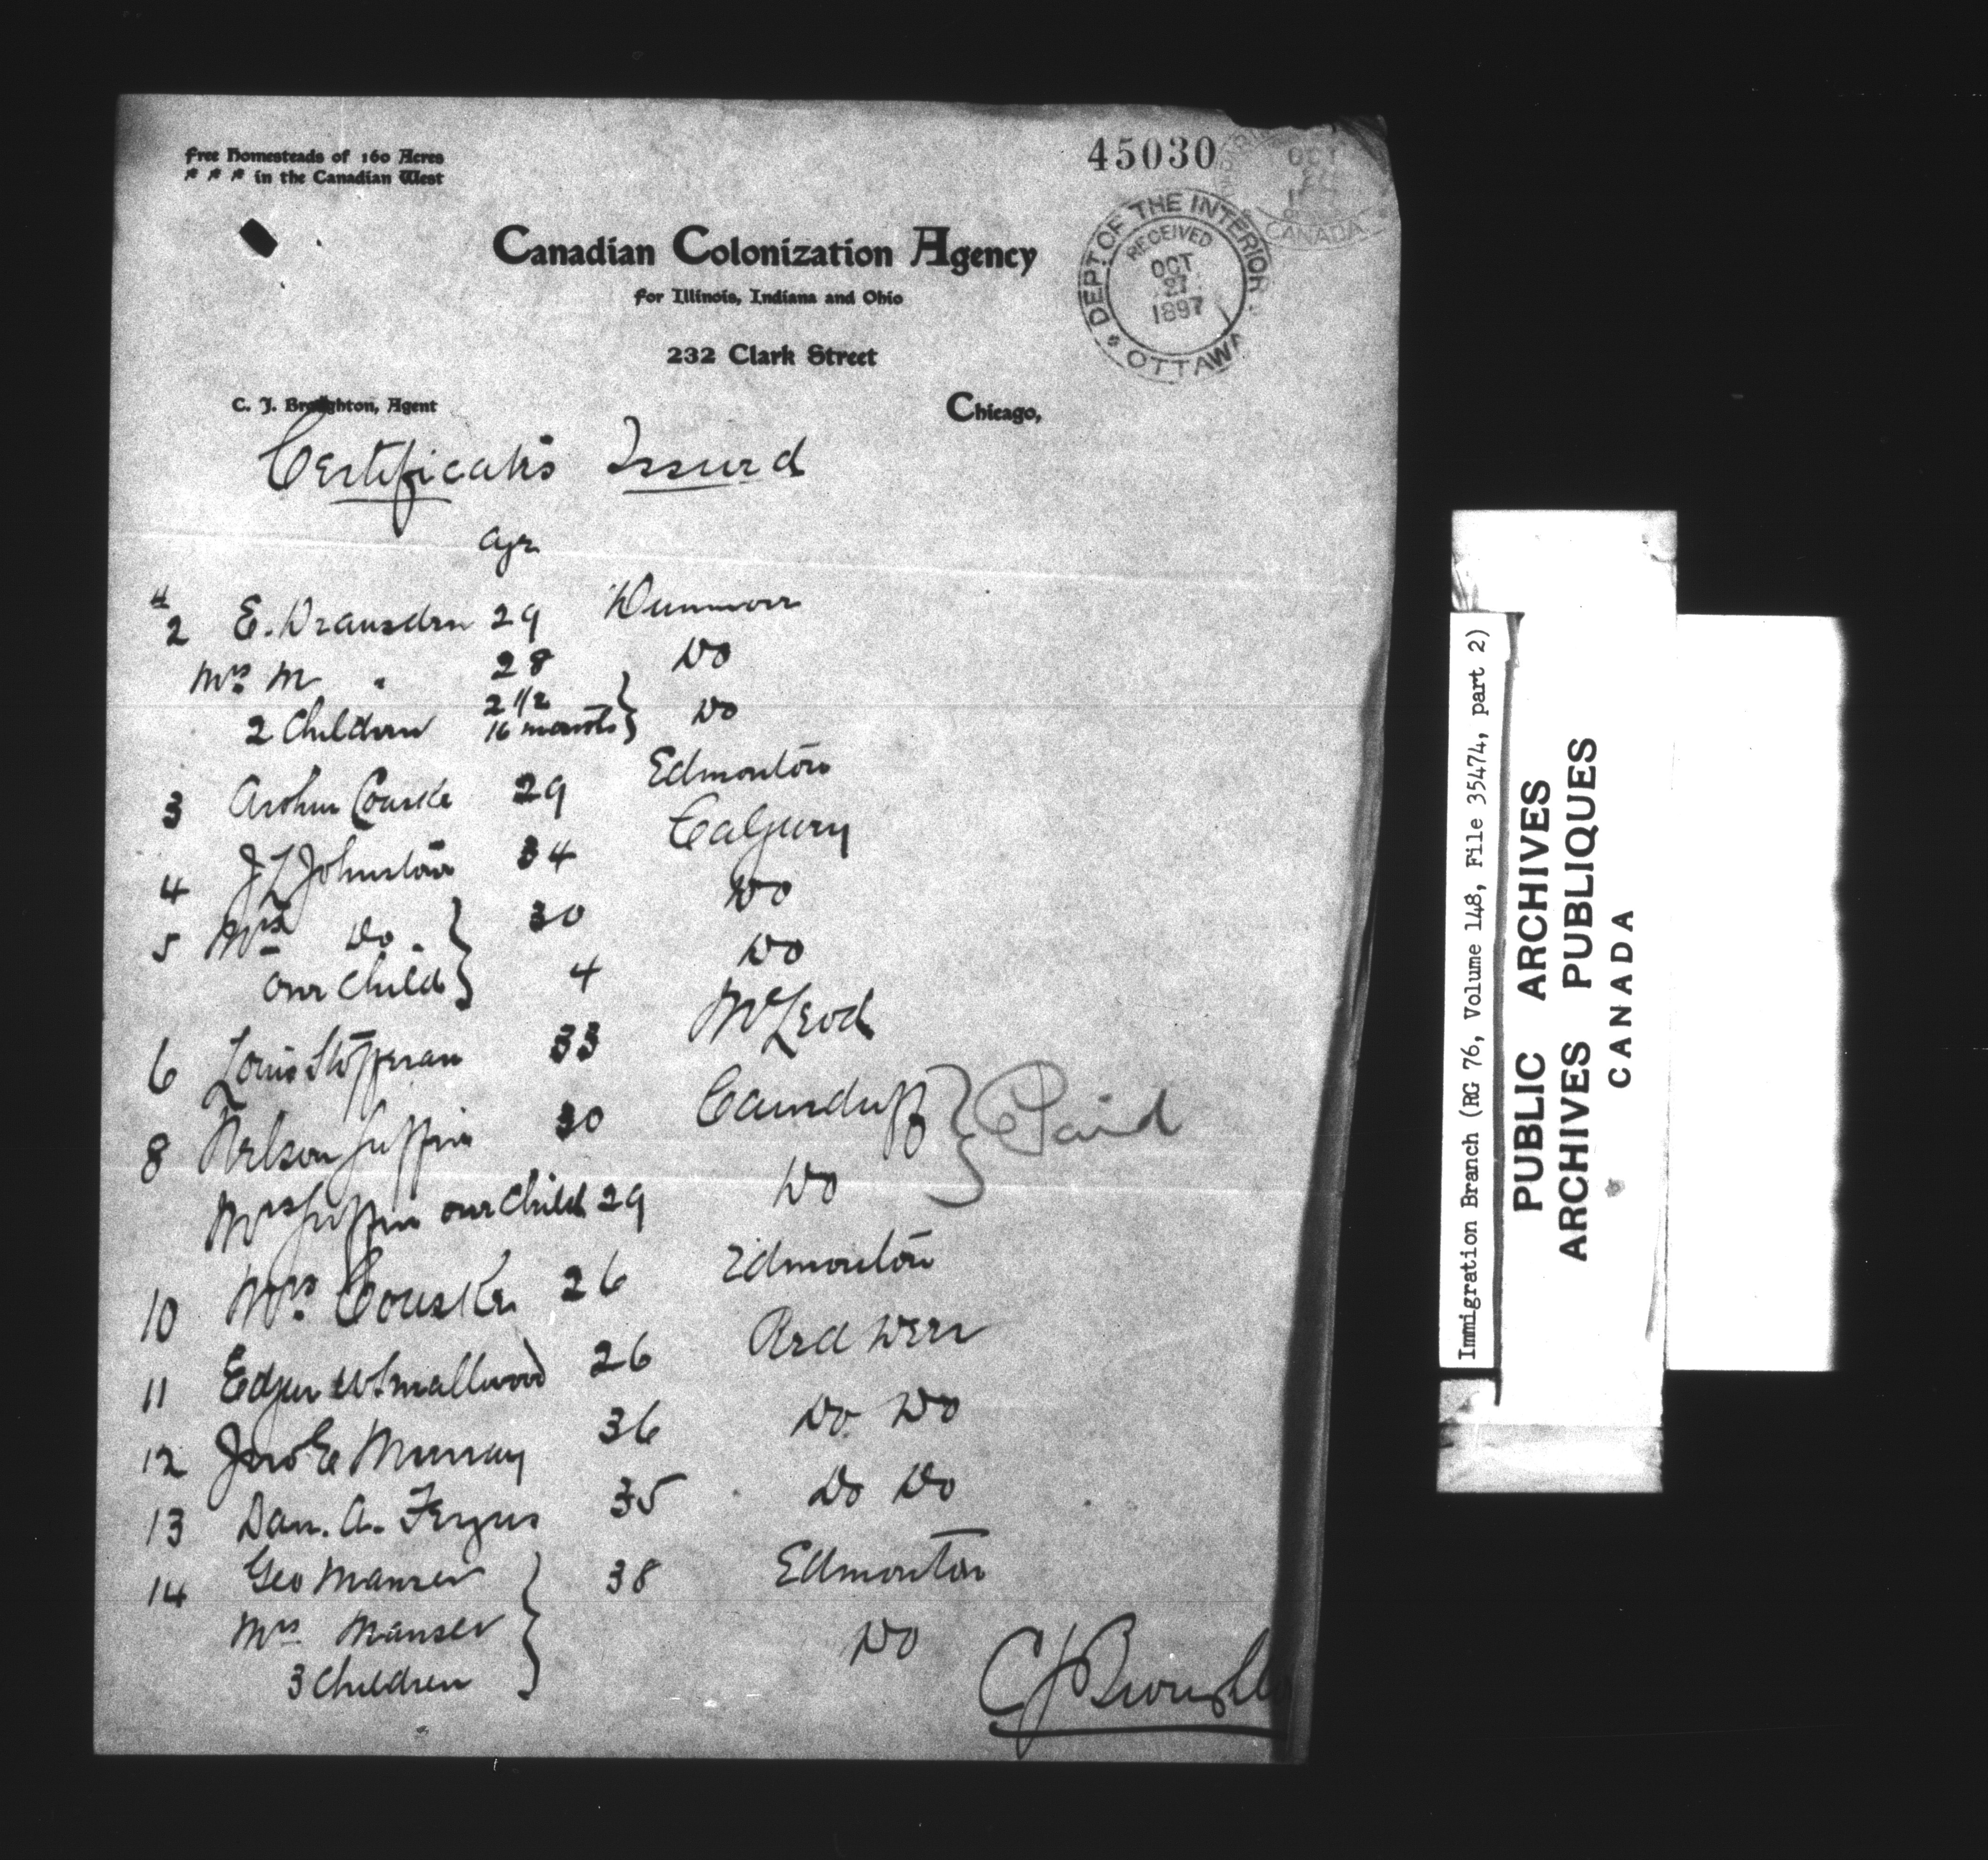 Free Homesteads of 160 Acres
in the Canadian West
45030
OCT
CANADA
Canadian Colonization Agency
for Illinois, Indiana and Ohio
232 Clark Street
DEPT OF THE INTERIOR
RECEIVED
OCT
27
1897
OTTAWA
C. J. Broughton, Agent
Chicago,
Certificates Issued
age
# 2 E. Dransden 29 Dunmore
Mrs. M " 28 Do
2 Children 2 1/2 16 months } Do
3 Arthur Couske 29 Edmonton
4 J L Johnston 34 Calgary
5 Mrs Do. } 30 Do
one child 4 Do
6 Louis 33 McLeod
8 Nelson 30 Carnduff } Paid
Mrs one child 29 Do
10 Mrs. Couske 26 Edmonton
11 Edgar W Smallwood 26 Red Deer
12 Jno E Murray 36 Do Do
13 Dan. A. Fergus 35 Do Do
14 Geo Manser } 38 Edmonton
Mrs Manser Do
3 Children
C J Broughto
Immigration Branch (RG 76, Volume 148, File 35474, part 2)
PUBLIC ARCHIVES
ARCHIVES PUBLIQUES
CANADA